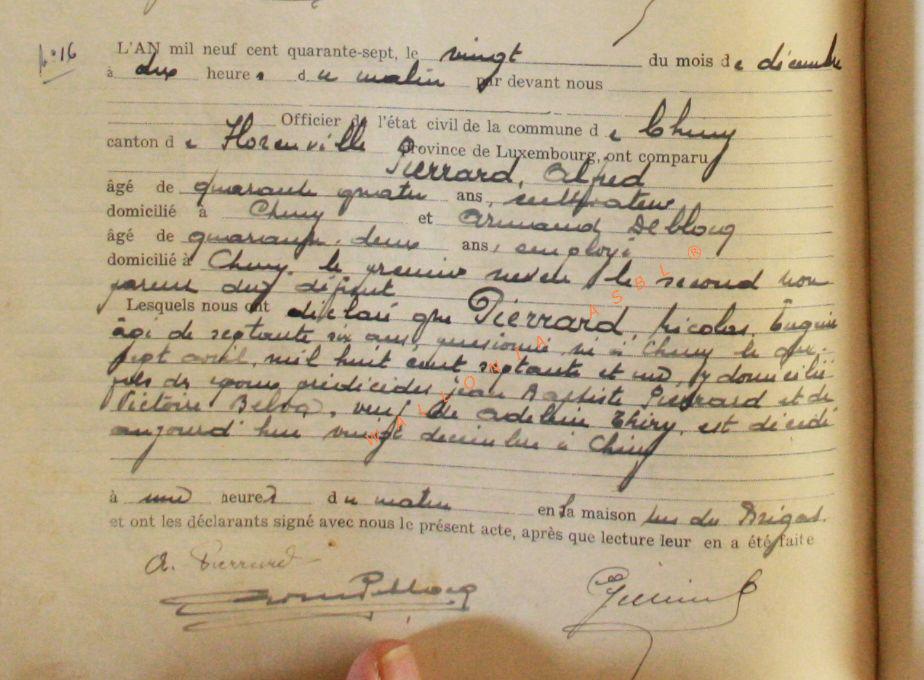 N° 16
L'AN mil neuf cent quarante-sept, le vingt du mois de décembre
à dix heures du matin par devant nous
Officier de l'état civil de la commune de Chiny
canton de Florenville province de Luxembourg, ont comparu
Pierrard, Alfred
âgé de quarante quatre ans, cultivateur
domicilié à Chiny et Armand Deblocq
âgé de quarante-deux ans, employé
domicilié à Chiny, le premier neveu le second non
parent du défunt
Lesquels nous ont déclaré que Pierrard, Nicolas, Eugène
âgé de septante six ans, pensionné, né à Chiny le
sept avril, mil huit cent septante et un, y domicilié
fils des époux prédécédés Jean Baptiste Pierrard et de
Victoire, veuf de Adeline Thiry, est décédé
aujourd'hui vingt décembre à Chiny
à une heures du matin en sa maison rue du
et ont les déclarants signé avec nous le présent acte, après que lecture leur en a été faite
A. Pierrard
WALLONIA ASBL ®